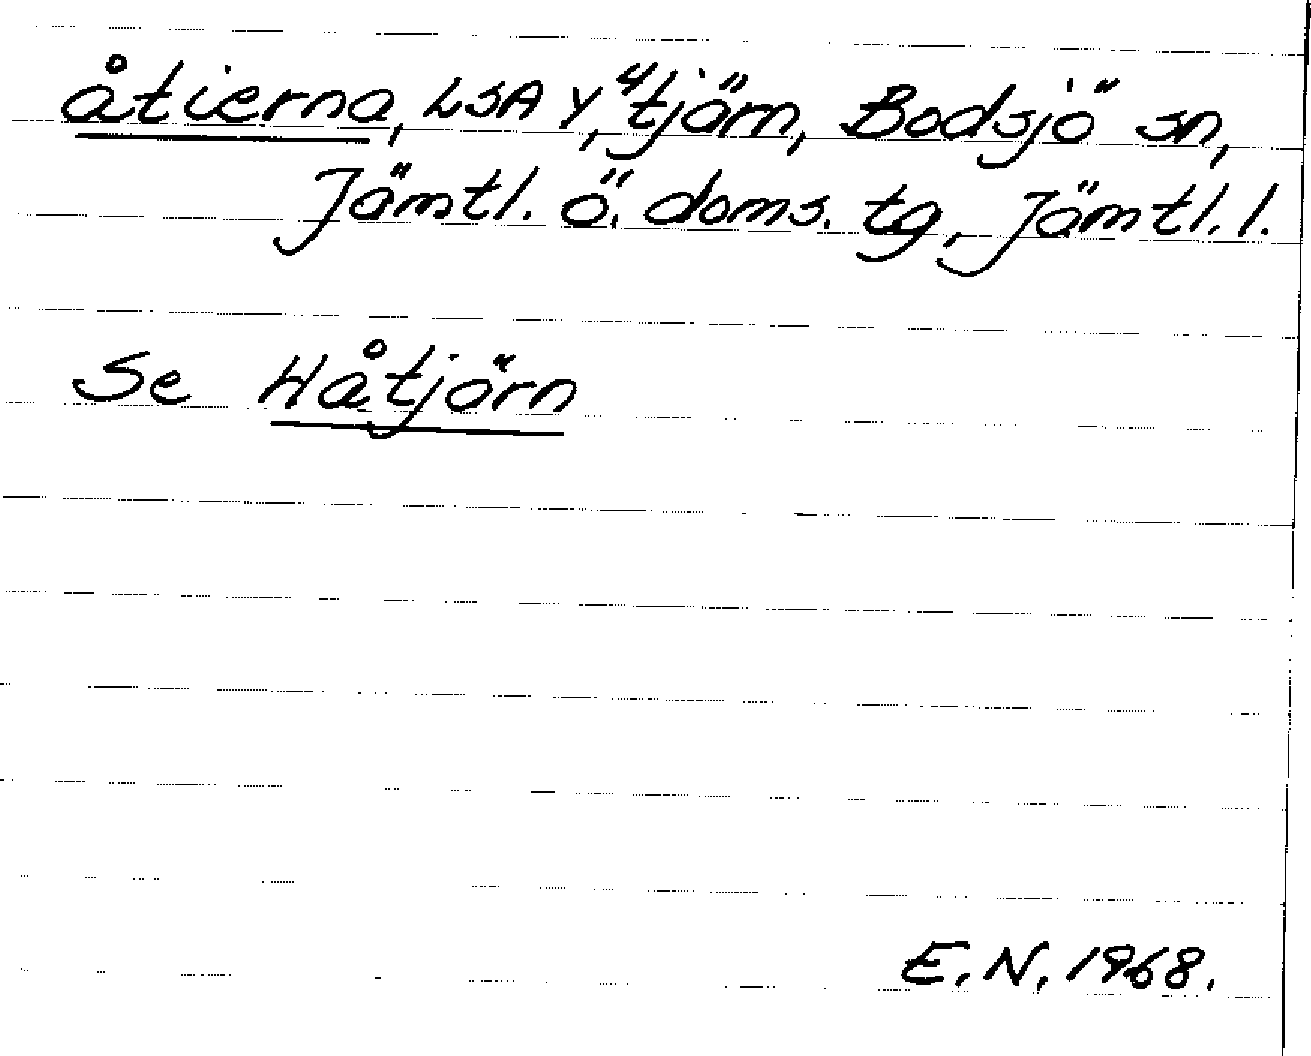 åtierna, LSA Y, "tjärn, Bodsjö" sn,
Jämtl. ö. doms. tg, Jämtl. l.
Se Håtjörn
E.N. 1968.